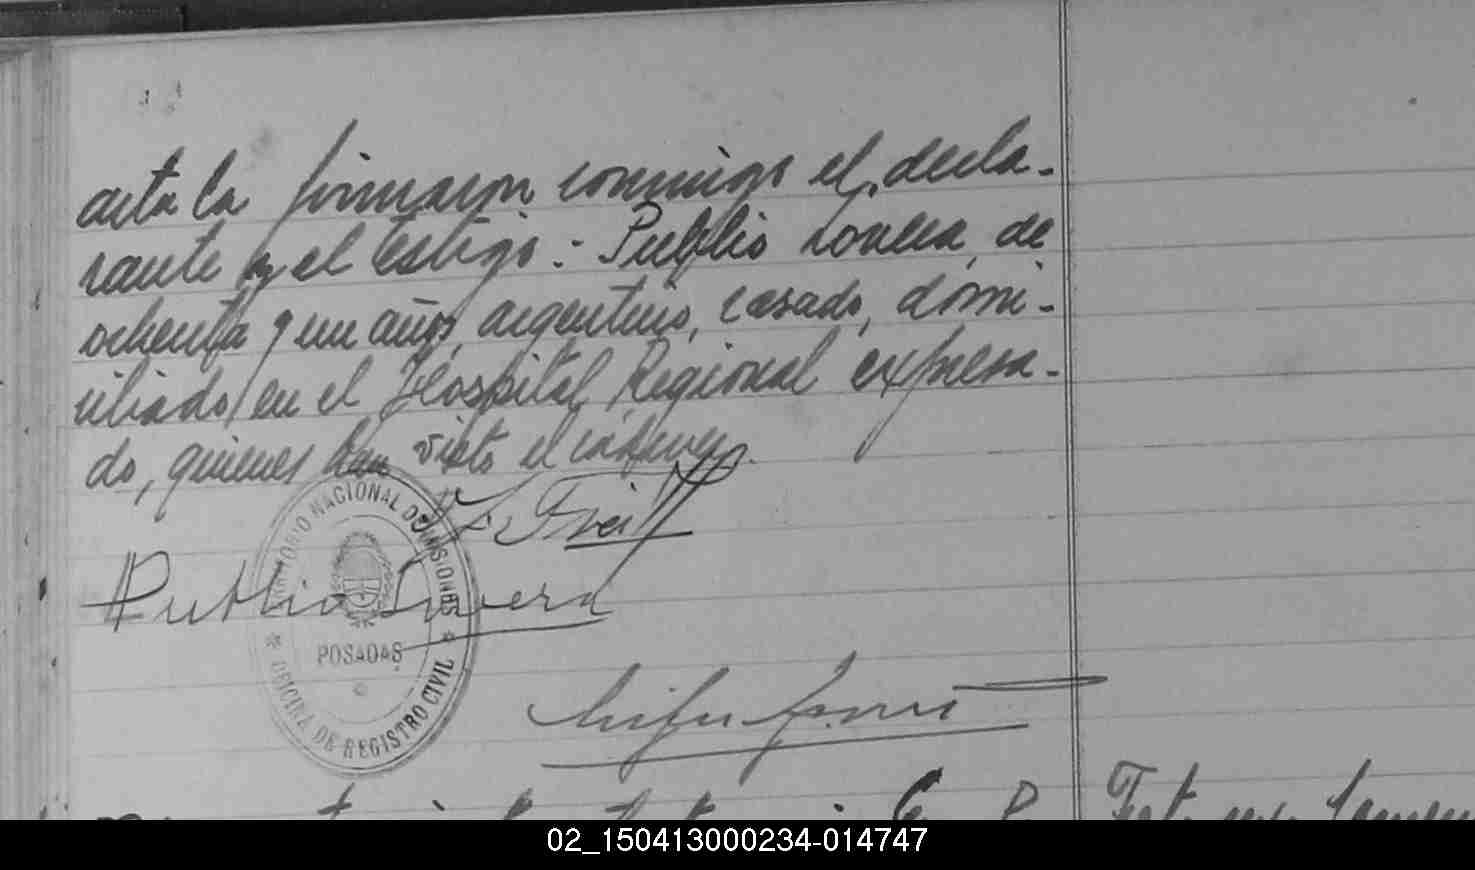 acta la firmaron conmigo el decla-
rante y el testigo: Publio Lovera, de
ochenta y un años, argentino, casado, domi-
ciliado en el Hospital Regional expresa-
do, quienes han visto el cadáver.
Publio Lovera
TERRITORIO NACIONAL DE MISIONES
POSADAS
* OFICINA DE REGISTRO CIVIL *
02_150413000234-014747